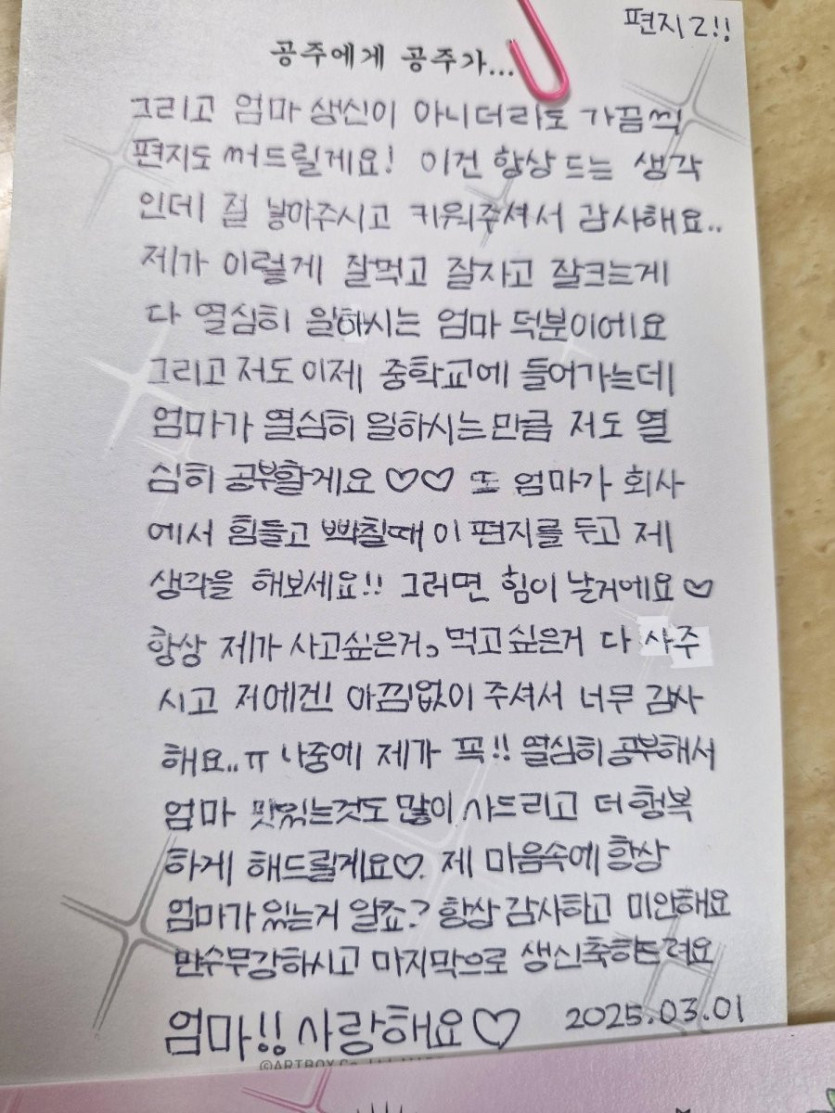 편지2!!
공주에게 공주가...
그리고 엄마 생신이 아니더라도 가끔씩
편지도 써드릴게요! 이건 항상 드는 생각
인데 절 낳아주시고 키워주셔서 감사해요..
제가 이렇게 잘먹고 잘자고 잘크는게
다 열심히 일하시는 엄마 덕분이에요
그리고 저도 이제 중학교에 들어가는데
엄마가 열심히 일하시는만큼 저도 열
심히 공부할게요♡♡ 또 엄마가 회사
에서 힘들고 빡칠때 이 편지를 두고 제
생각을 해보세요!! 그러면 힘이 날거에요♡
항상 제가 사고싶은거, 먹고싶은거 다 사주
시고 저에겐! 아낌없이 주셔서 너무 감사
해요..ㅠ 나중에 제가 꼭!! 열심히공부해서
엄마 맛있는것도 많이 사드리고 더 행복
하게 해드릴게요♡. 제 마음속에 항상
엄마가 있는거 알죠? 항상 감사하고 미안해요
만수무강하시고 마지막으로 생신축하드려요
엄마!! 사랑해요♡ 2025.03.01